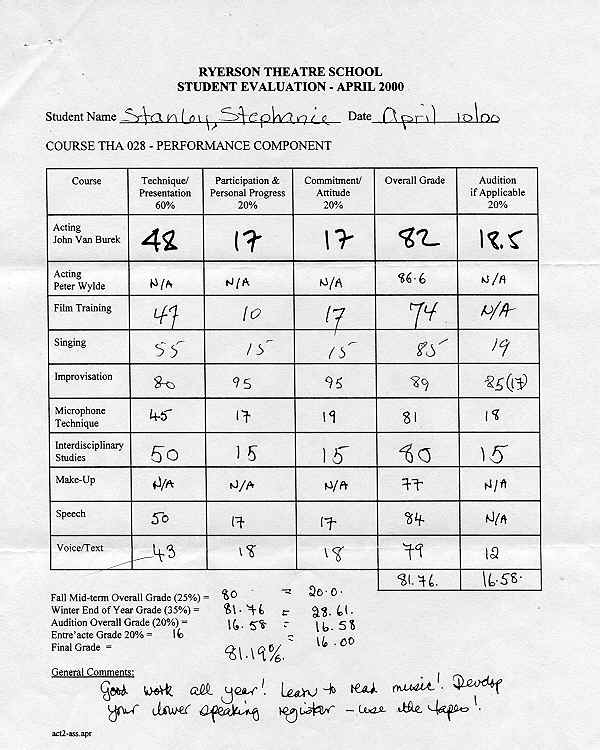 RYERSON THEATRE SCHOOL
STUDENT EVALUATION - APRIL 2000
Student Name Stanley, Stephanie Date April 10/00
COURSE THA 028 - PERFORMANCE COMPONENT
Course Technique/ Presentation 60% Participation & Personal Progress 20% Commitment/ Attitude 20% Overall Grade Audition if Applicable 20%
Acting John Van Burek 48 17 17 82 18.5
Acting Peter Wylde N/A N/A N/A 86.6 N/A
Film Training 47 10 17 74 N/A
Singing 55 15 15 85 19
Improvisation 80 95 95 89 85(17)
Microphone Technique 45 17 19 81 18
Interdisciplinary Studies 50 15 15 80 15
Make-Up N/A N/A N/A 77 N/A
Speech 50 17 17 84 N/A
Voice/Text 43 18 18 79 12
81.76. 16.58.
Fall Mid-term Overall Grade (25%) = 80 = 20.0.
Winter End of Year Grade (35%) = 81.76 = 28.61.
Audition Overall Grade (20%) = 16.58 = 16.58
Entre'acte Grade 20% = 16 = 16.00
Final Grade = 81.19%.
General Comments:
Good work all year! Learn to read music! Develop
your lower speaking register - use the tapes!
act2-ass.apr